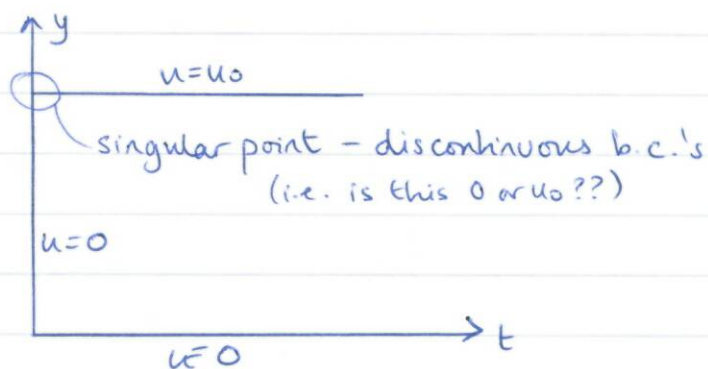 y
u=u0
singular point – discontinuous b.c.'s
(i.e. is this 0 or u0??)
u=0
t
u=0